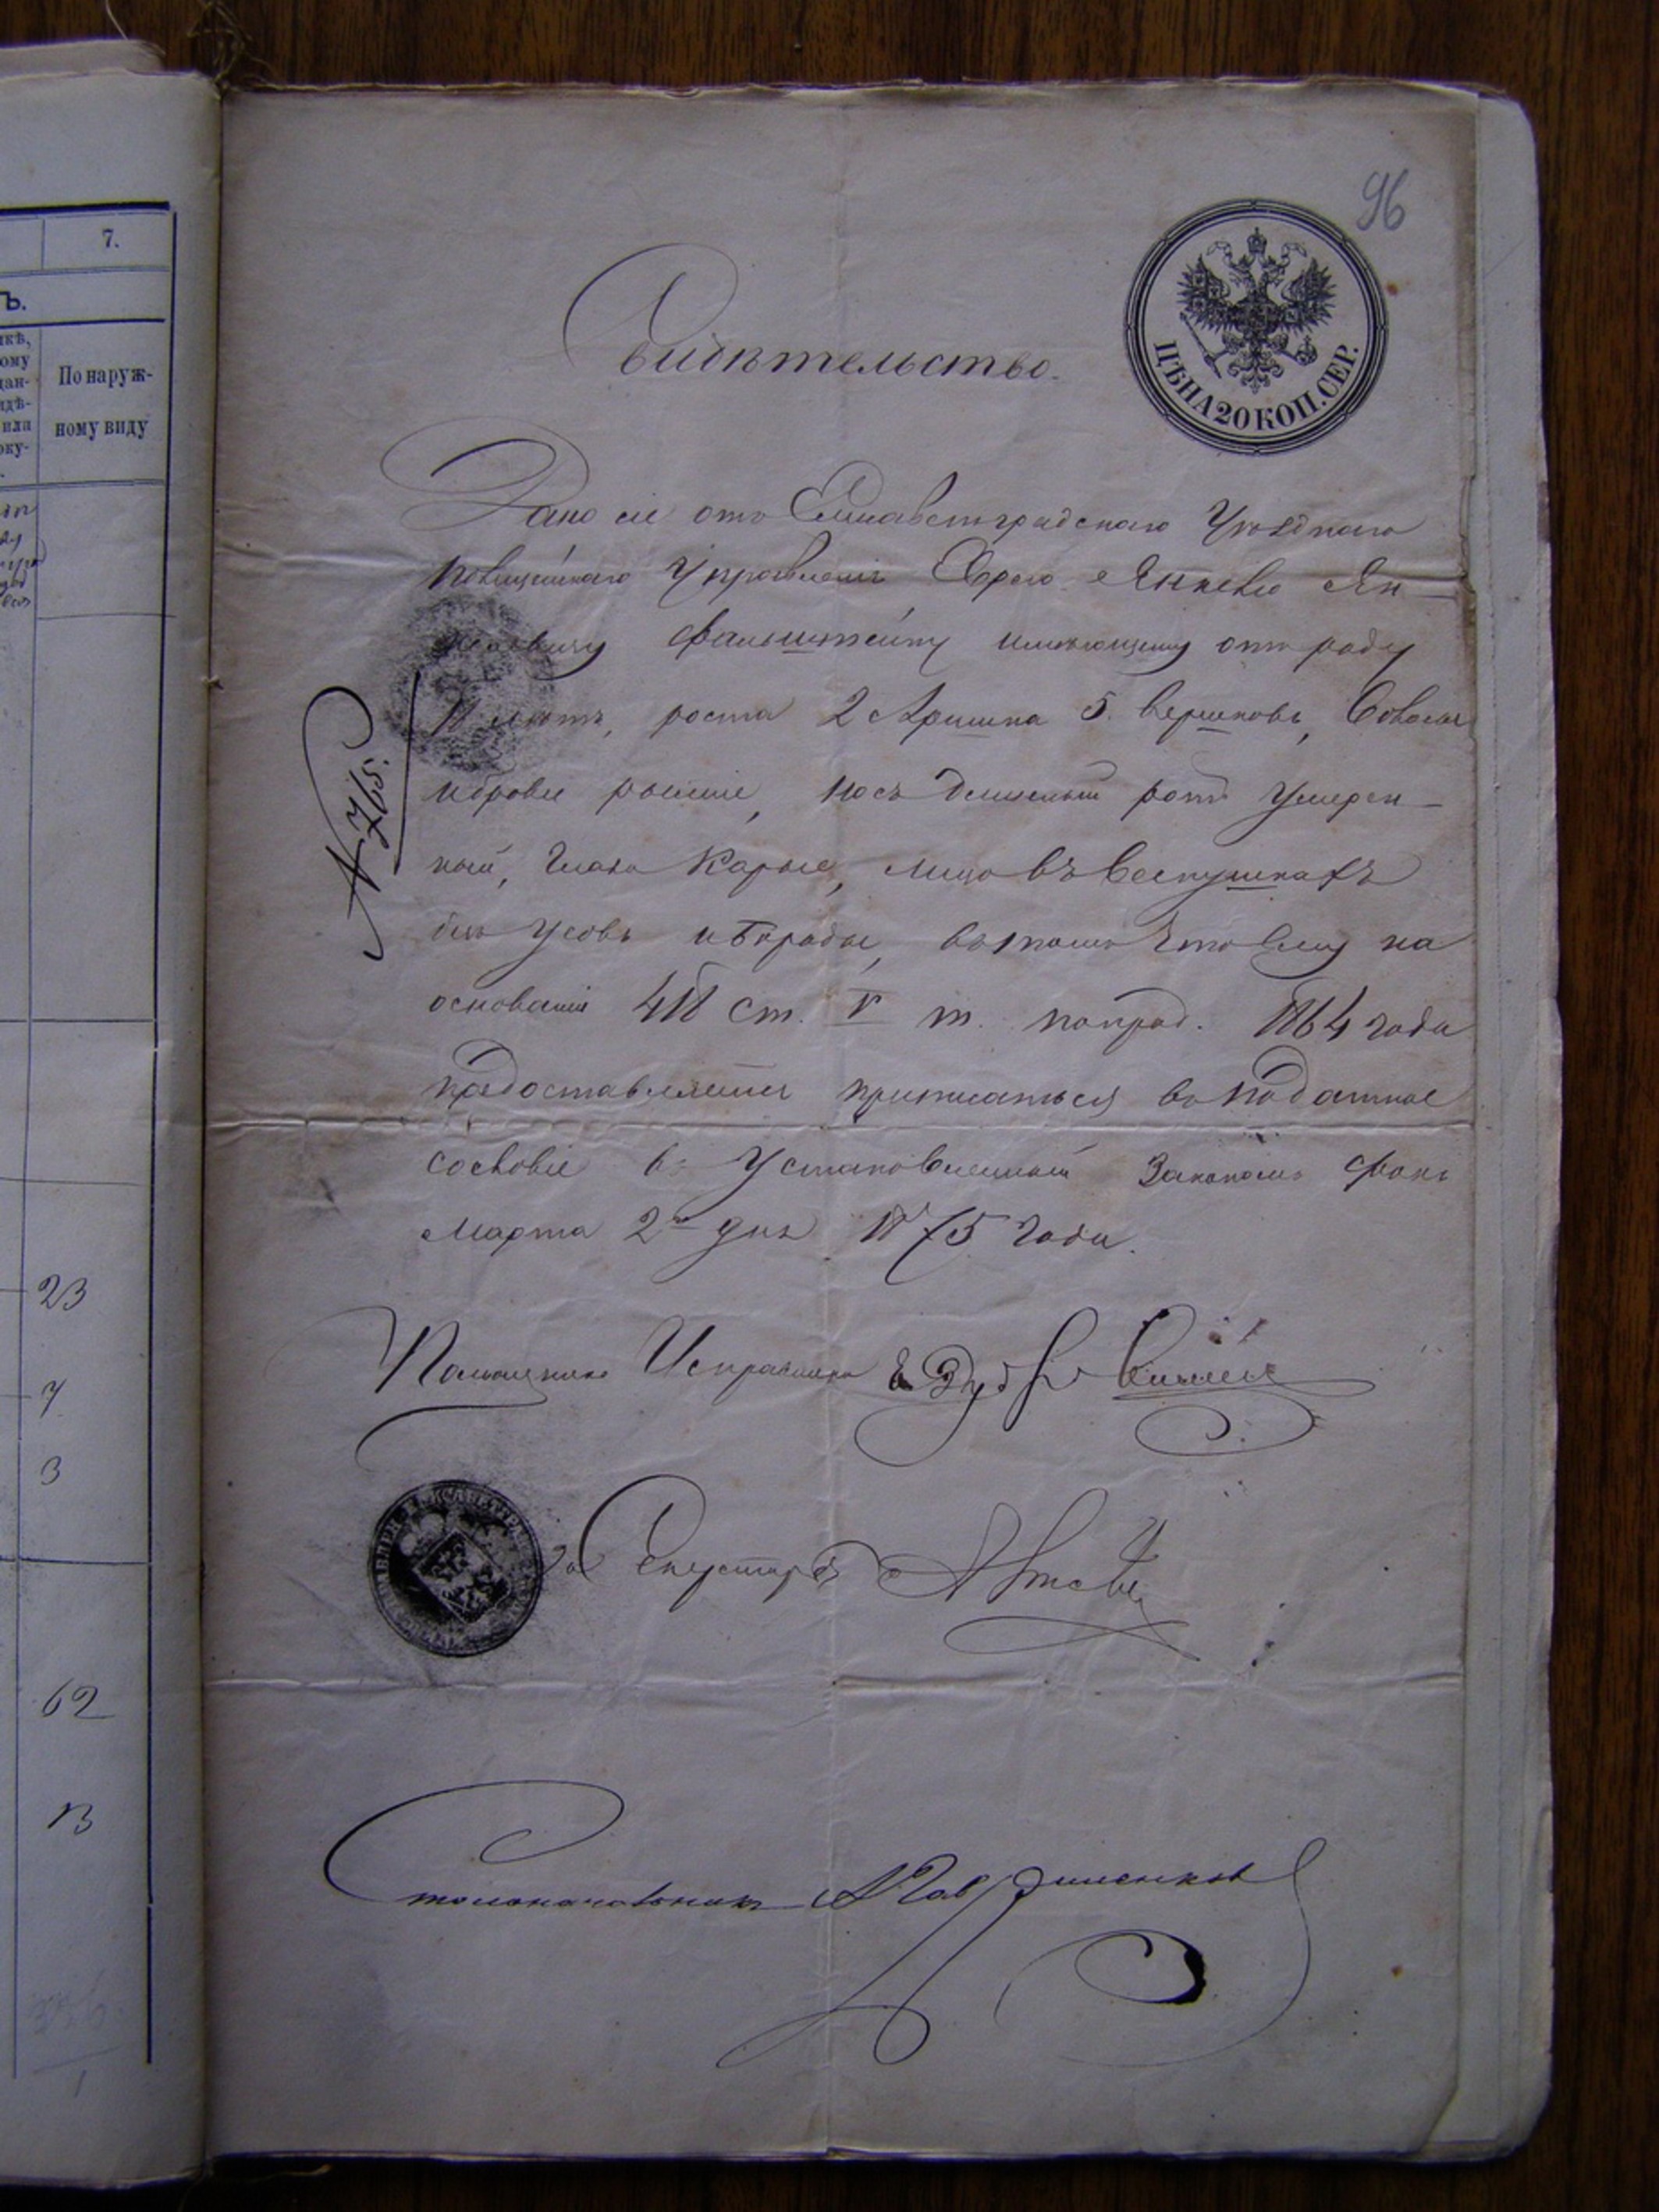 96
ЦѢНА 20 КОП. СЕР.
7.
Ъ.
По наруж-
ному виду
23
7
3
62
13
Свидѣтельство.
Дано сіе отъ Елисаветградскаго Уѣзднаго
полицейскаго Управленія Еврею Янкелю Ян-
келевичу Фальштейну имѣющему отъ роду
лѣтъ, роста 2 Аршина 5. вершковъ, волосы
и брови рыжіе, носъ ротъ умерен-
ный, глаза Каріе, лицо въ веснушкахъ
безъ усовъ и бороды, въ томъ что ему на
основаніи 418 ст. V т. по прод. 1864 года
предоставляется приписаться въ податное
сословіе въ установленный закономъ срокъ
Марта 2го дня 1875 года.
№ 765.
Помощникъ Исправника
за Секретаря
Столоначальникъ